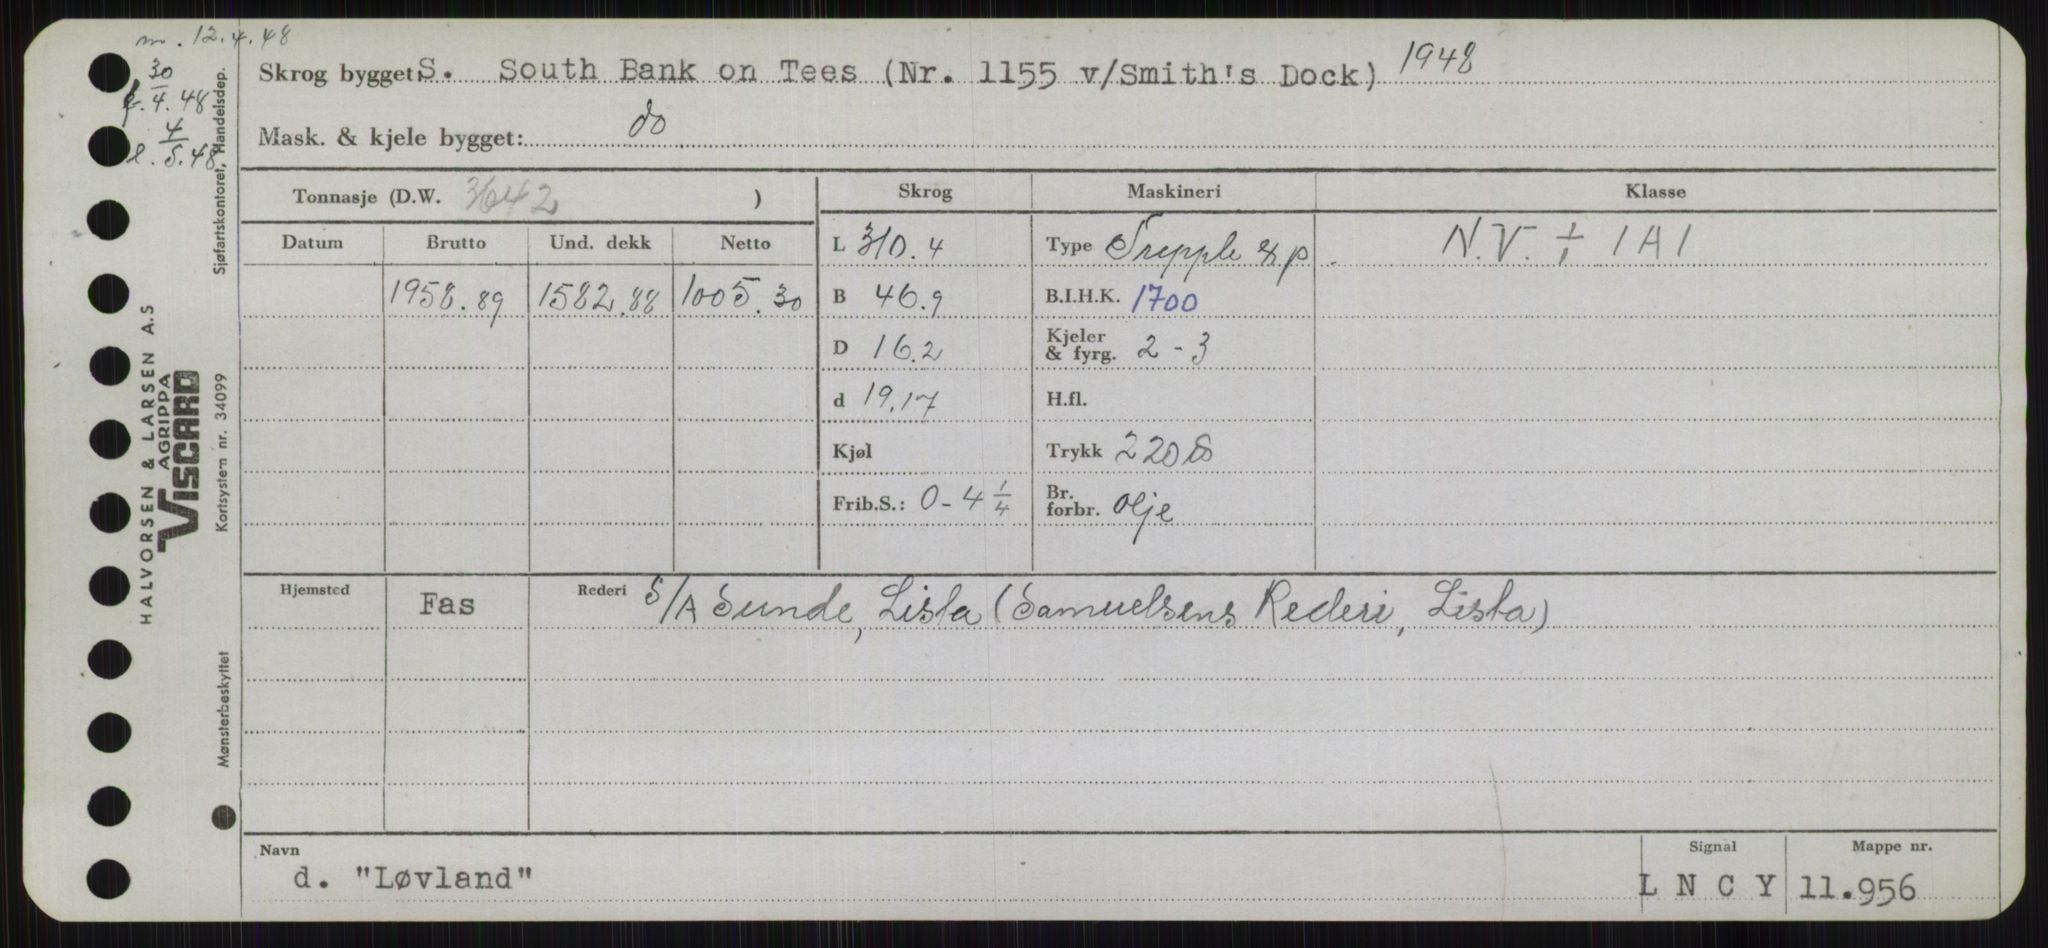 m. 12.4.48
30
f. 4. 48
4
l. 5. 48
Skrog bygget: S. South Bank on Tees (Nr. 1155 v/Smith's Dock) 1948
Mask. & kjele bygget: do
Tonnasje (D.W. 3642 )
Skrog
Maskineri
Klasse
Datum
Brutto
Und. dekk
Netto
1958.89
1582.88
1005.30
L 310.4
B 46.9
D 16.2
d 19.17
Kjøl
Frib.S.: 0-4 1/4
Type Tripple exp.
B.I.H.K. 1700
Kjeler
& fyrg. 2-3
H.fl.
Trykk 220
Br.
forbr. olje
N.V. + 1A1
Hjemsted
Fas
Rederi S/A Sunde, Lista (Samuelsens Rederi, Lista)
Navn
d. "Løvland"
Signal
L N C Y
Mappe nr.
11.956
HALVORSEN & LARSEN A.S
AGRIPPA
VISCARD
Sjøfartskontoret, Handelsdep.
Kortsystem nr. 34099
Mønsterbeskyttet